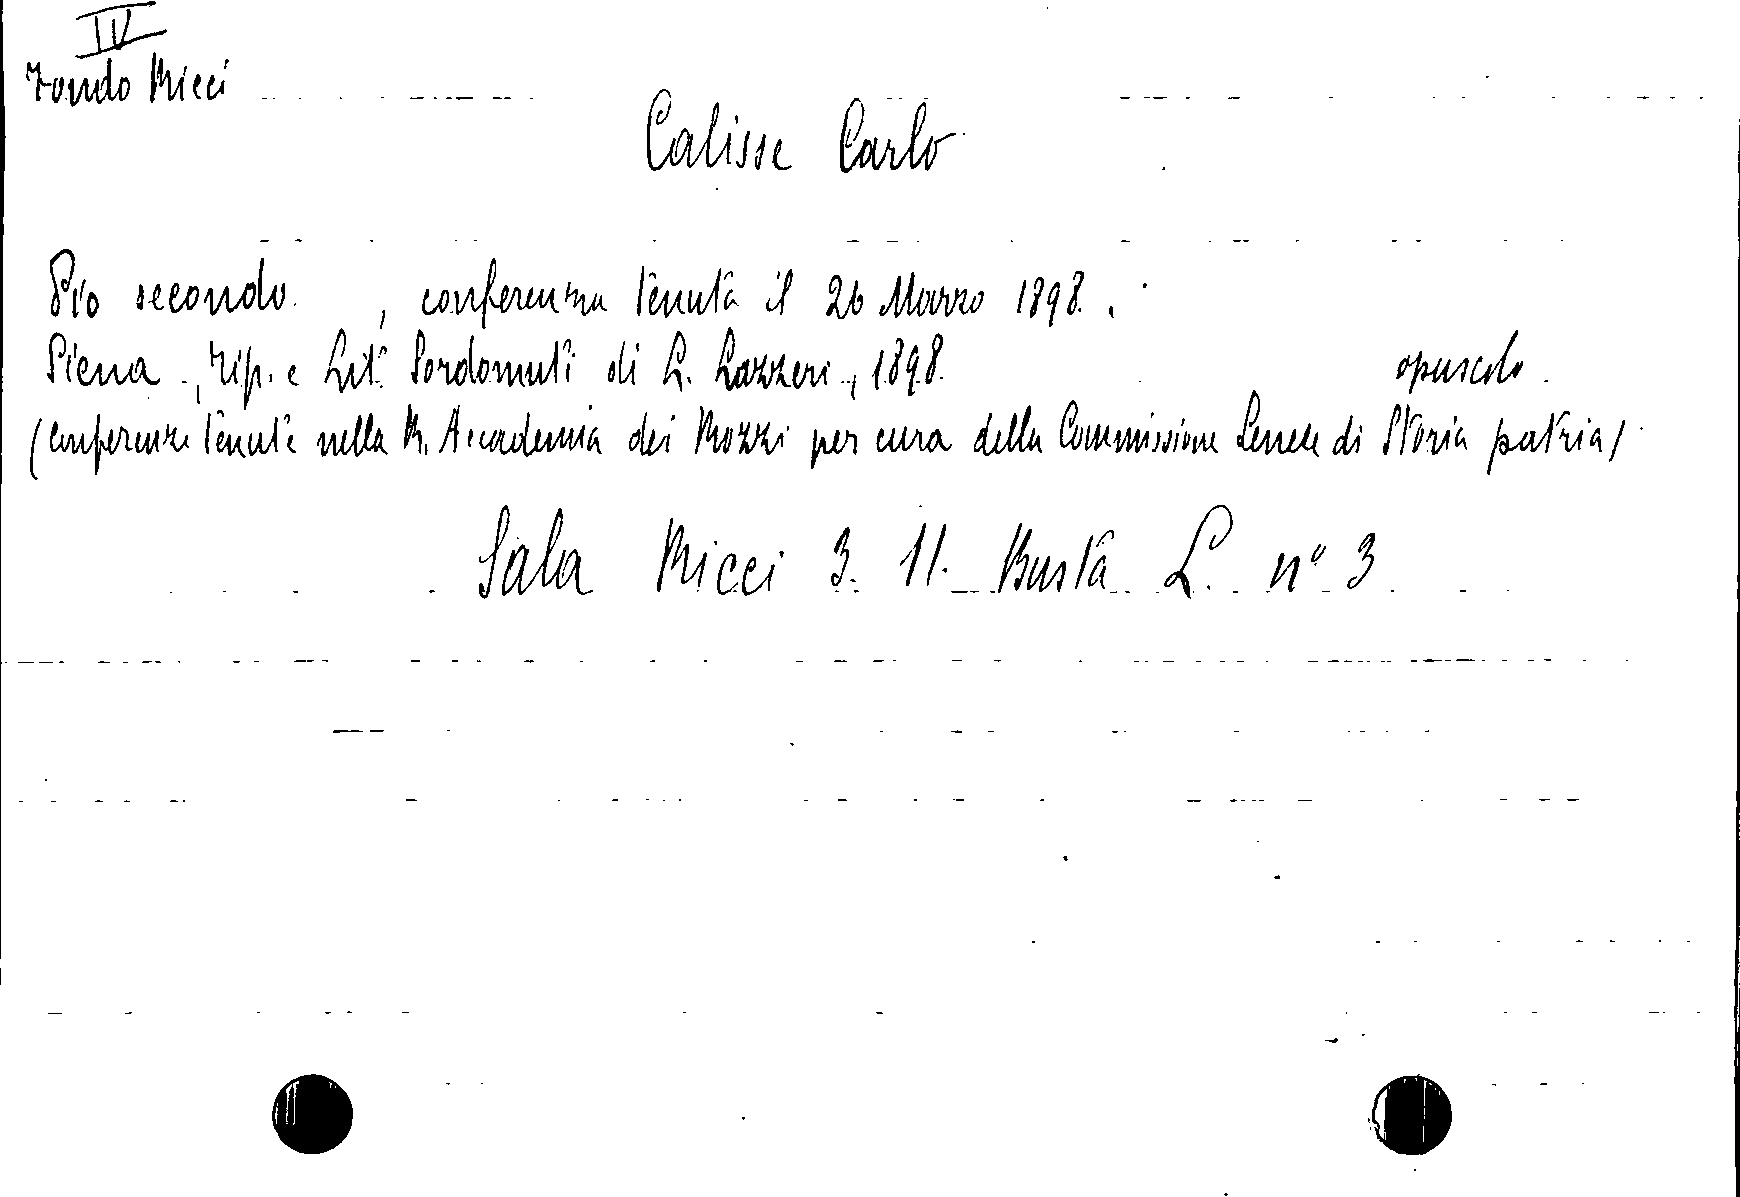 IV
Fondo Ricci
Calisse Carlo
Pio secondo , conferenza tenuta il 26 Marzo 1898.
Siena, Tip. e Lit. Sordomuti di L. Lazzeri, 1898 opuscolo
(Conferenze tenute nella R. Accademia dei Rozzi per cura della Commissione Senese di Storia patria)
Sala Ricci 3. 11. Busta L. n° 3